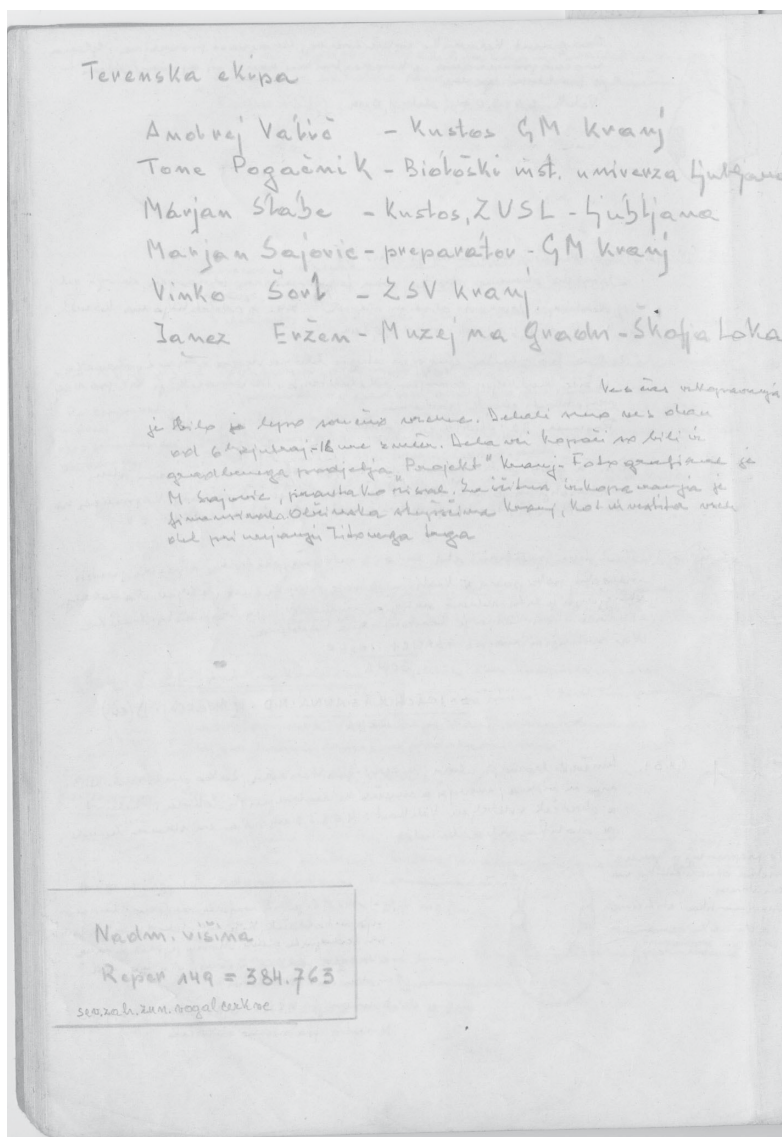 Terenska ekipa
Andrej Valič - Kustos GM Kranj
Tone Pogačnik - Biološki inst. univerza Ljubljana
Marjan Slabe - Kustos, ZVSL - Ljubljana
Marjan Sajovic - preparator - GM Kranj
Vinko Šorl - ZSV Kranj
Janez Eržen - Muzej na gradu - Škofja Loka
Ves čas izkopavanja
je bilo lepo sončno vreme. Delali smo ves dan
od 6 zjutraj - ure zvečer. Delavci kopači so bili iz
gradbenega podjetja "Projekt" Kranj. Fotografiral je
M. Sajovic, prav tako risal. Zaščitna izkopavanja je
financirala Občinska skupščina Kranj, kot investitor
del pri urejanju Titovega trga
Nadm. višina
Reper 149 = 384.763
sev.zah.zun.vogal cerkve